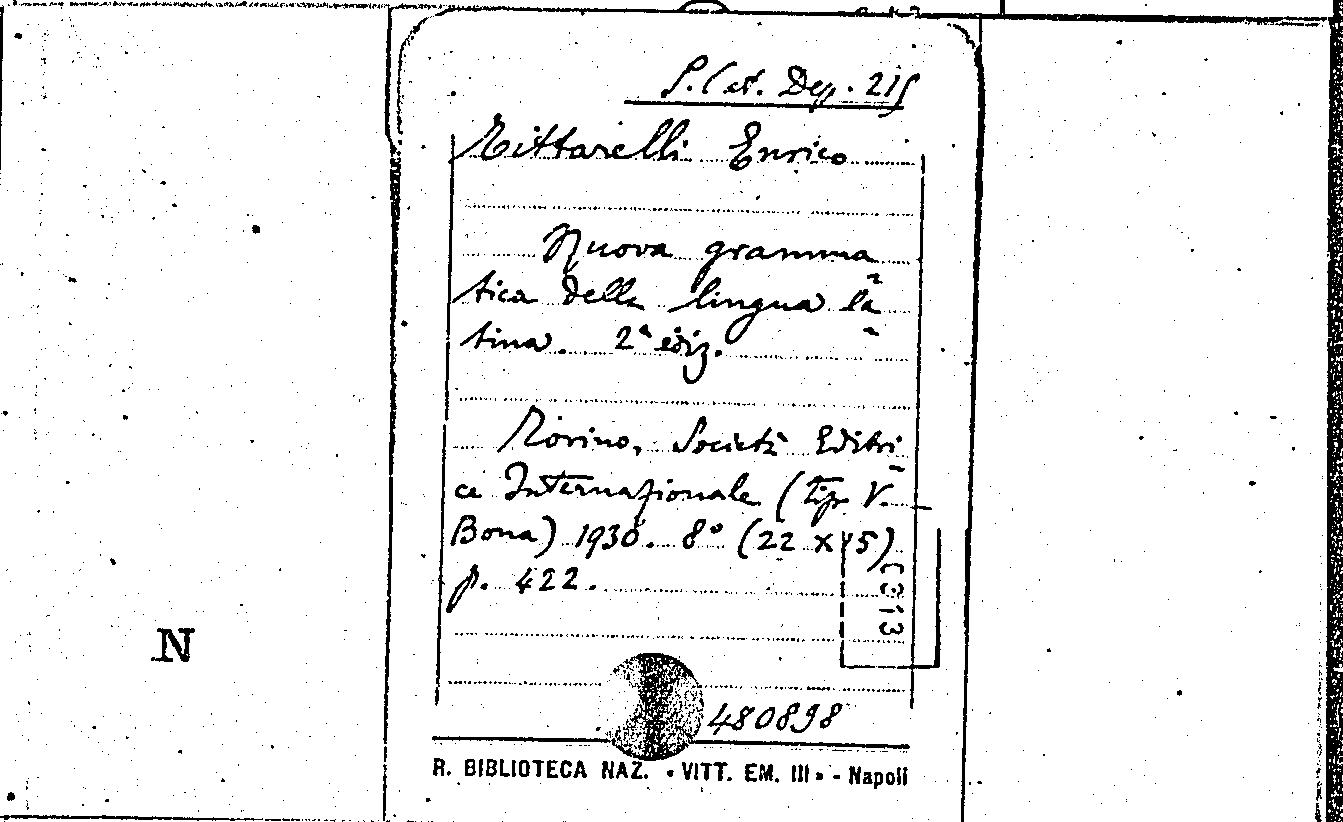 S. Cat. Dep. 215
Mittarelli Enrico
Nuova gramma
tica della lingua la
tina. 2ª ediz.
Torino, Società Editri
ce Internazionale (tip. V.
Bona) 1930. 8° (22 x 15)
p. 422.
N
480898
R. BIBLIOTECA NAZ. «VITT. EM. III» - Napoli